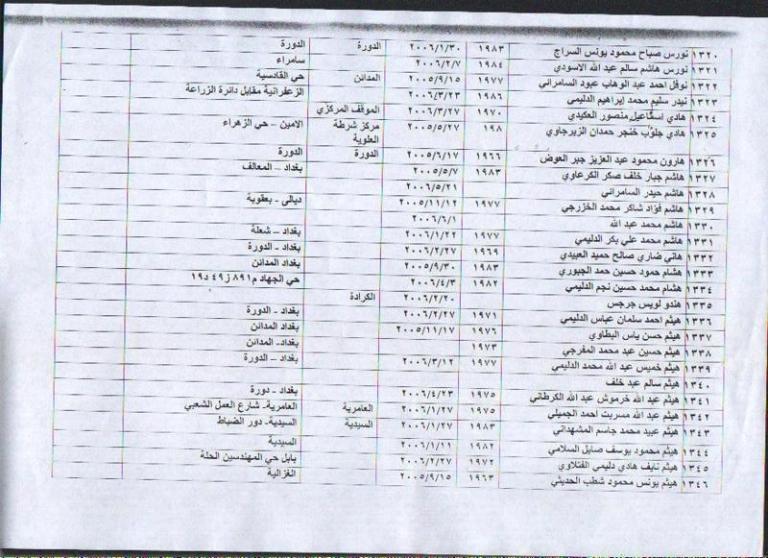 ١٣٢٠ نورس صباح محمود يونس السراج ١٩٨٣ ٢٠٠٦/١/٣٠ الدورة الدورة
١٣٢١ نورس هاشم سالم عبد الله الاسودي ١٩٨٤ ٢٠٠٦/٢/٧ سامراء
١٣٢٢ نوفل احمد عبد الوهاب عبود السامرائي ١٩٧٧ ٢٠٠٥/٩/١٥ المدائن حي القادسية
١٣٢٣ نيدر سليم محمد إبراهيم الدليمي ١٩٨٦ ٢٠٠٦/٣/٢٣ الزعفرانية مقابل دائرة الزراعة
١٣٢٤ هادي إسماعيل منصور العكيدي ١٩٧٠ ٢٠٠٦/٣/٢٧ الموقف المركزي
١٣٢٥ هادي جلوب خنجر حمدان الزيرجاوي ١٩٨ ٢٠٠٥/٥/٢٧ مركز شرطة العلوية الامين – حي الزهراء
١٣٢٦ هارون محمود عبد العزيز جبر العوض ١٩٦٦ ٢٠٠٥/٦/١٧ الدورة الدورة
١٣٢٧ هاشم جبار خلف صكر الكرعاوي ١٩٨٣ ٢٠٠٥/٥/٧ بغداد – المعالف
١٣٢٨ هاشم حيدر السامرائي ٢٠٠٦/٥/٢١
١٣٢٩ هاشم فؤاد شاكر محمد الخزرجي ١٩٧٧ ٢٠٠٥/١١/١٢ ديالى - بعقوبة
١٣٣٠ هاشم محمد عبد الله ٢٠٠٦/٦/١
١٣٣١ هاشم محمد علي بكر الدليمي ١٩٧٧ ٢٠٠٦/١/٢٢ بغداد – شعلة
١٣٣٢ هاني ضاري صالح حميد العبيدي ١٩٦٩ ٢٠٠٦/٢/٢٧ بغداد - الدورة
١٣٣٣ هشام حمود حسين حمد الجبوري ١٩٨٣ ٢٠٠٥/٩/٣٠ بغداد المدائن
١٣٣٤ هشام محمد حسين نجم الدليمي ١٩٨٢ ٢٠٠٦/٤/٣ حي الجهاد م٨٩١ ز٤٩ د١٩
١٣٣٥ هندو لويس جرجس ٢٠٠٦/٢/٢٠ الكرادة
١٣٣٦ هيثم احمد سلمان عباس الدليمي ١٩٧١ ٢٠٠٦/٢/٢٧ بغداد - الدورة
١٣٣٧ هيثم حسن ياس البطاوي ١٩٧٦ ٢٠٠٥/١١/١٧ بغداد المدائن
١٣٣٨ هيثم حسين عبد محمد المفرجي ١٩٧٣ بغداد- المدائن
١٣٣٩ هيثم خميس عبد الله محمد الدليمي ١٩٧٧ ٢٠٠٦/٣/١٢ بغداد – الدورة
١٣٤٠ هيثم سالم عبد خلف
١٣٤١ هيثم عبد الله خرموش عبد الله الكرطاني ١٩٧٥ ٢٠٠٦/٤/٢٣ بغداد - دورة
١٣٤٢ هيثم عبد الله مسربت احمد الجميلي ١٩٧٥ ٢٠٠٦/١/٢٧ العامرية العامرية- شارع العمل الشعبي
١٣٤٣ هيثم عبيد محمد جاسم المشهداني ١٩٨٣ ٢٠٠٦/١/٢٧ السيدية السيدية- دور الضباط
١٣٤٤ هيثم محمود يوسف صايل السلامي ١٩٨٢ ٢٠٠٦/١/١١ السيدية
١٣٤٥ هيثم نايف هادي دليمي الفتلاوي ١٩٧٢ ٢٠٠٦/٢/٢٧ بابل حي المهندسين الحلة
١٣٤٦ هيثم يونس محمود شطب الحديثي ١٩٦٣ ٢٠٠٥/٩/١٥ الغزالية